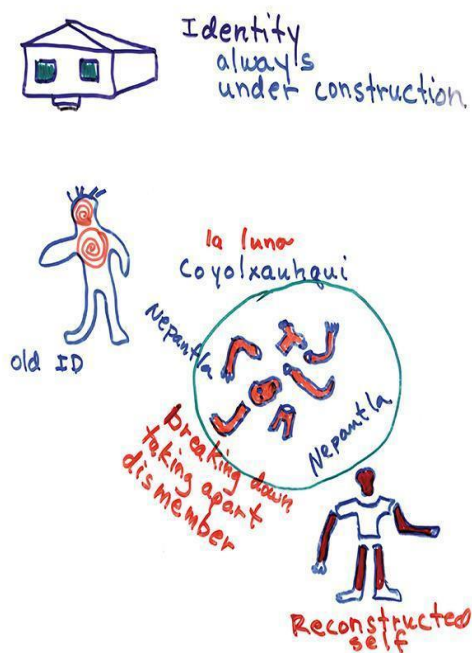 Identity
always
under construction
la luna
Coyolxauhqui
Nepantla
old ID
Nepantla
breaking down
taking apart
dismember
Reconstructed
self